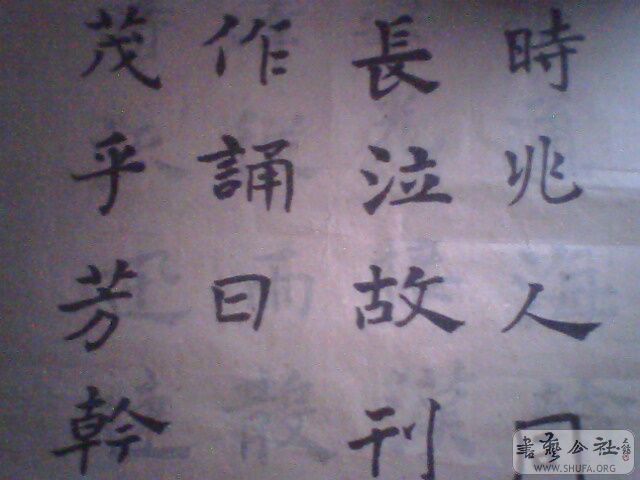 時兆人
長泣故刊
作誦曰
茂乎芳幹
書藝公社
WWW.SHUFA.ORG